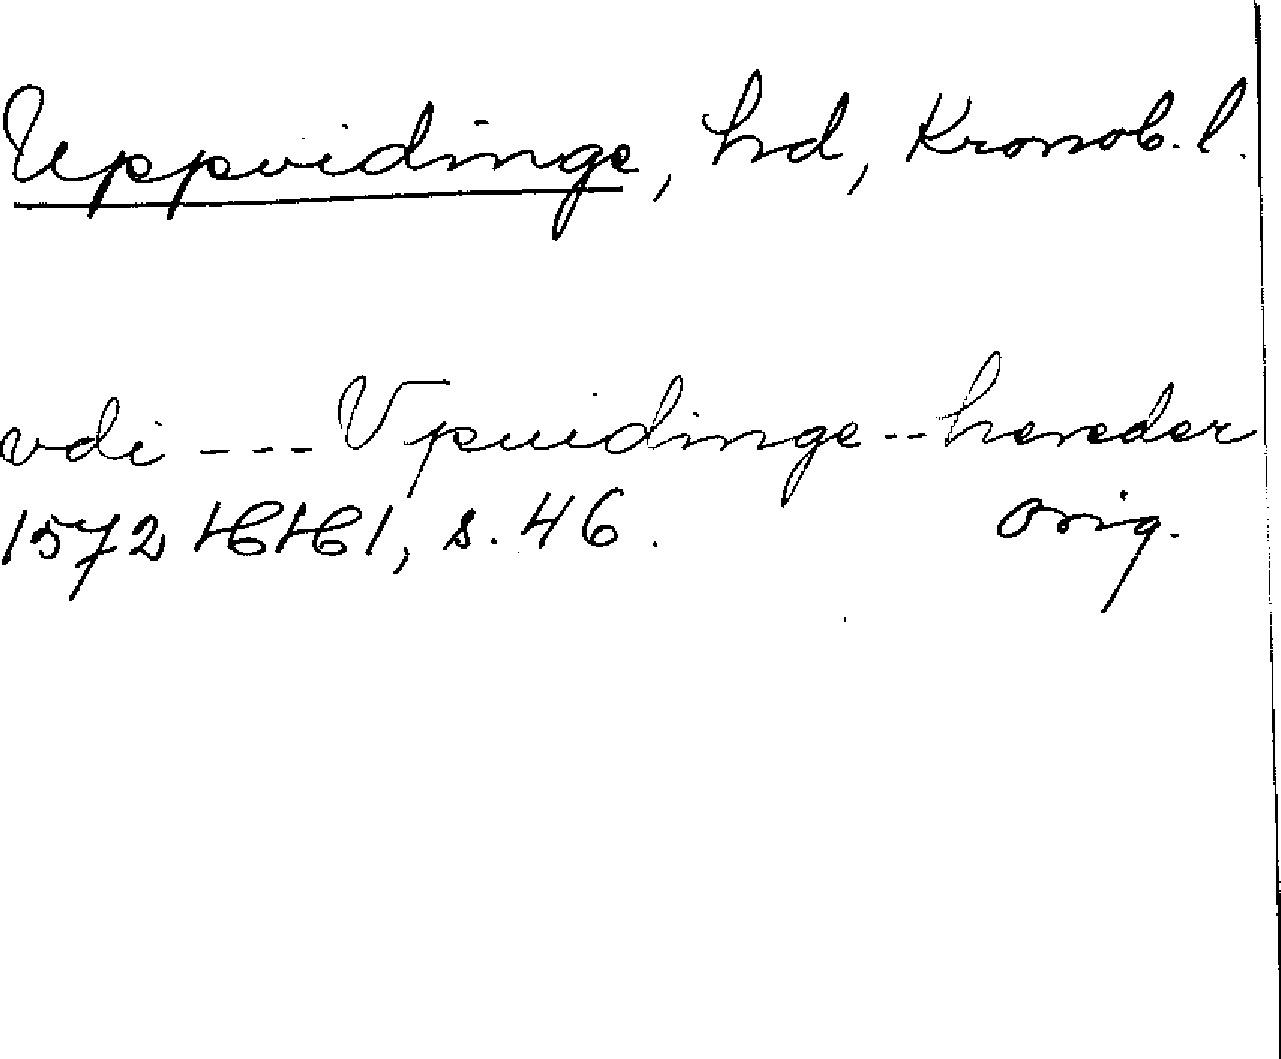 Uppvidinge, hd, Kronob. l.
vdi --- Vpuidinge -- hereder
1572 HH 1, s. 46. orig.